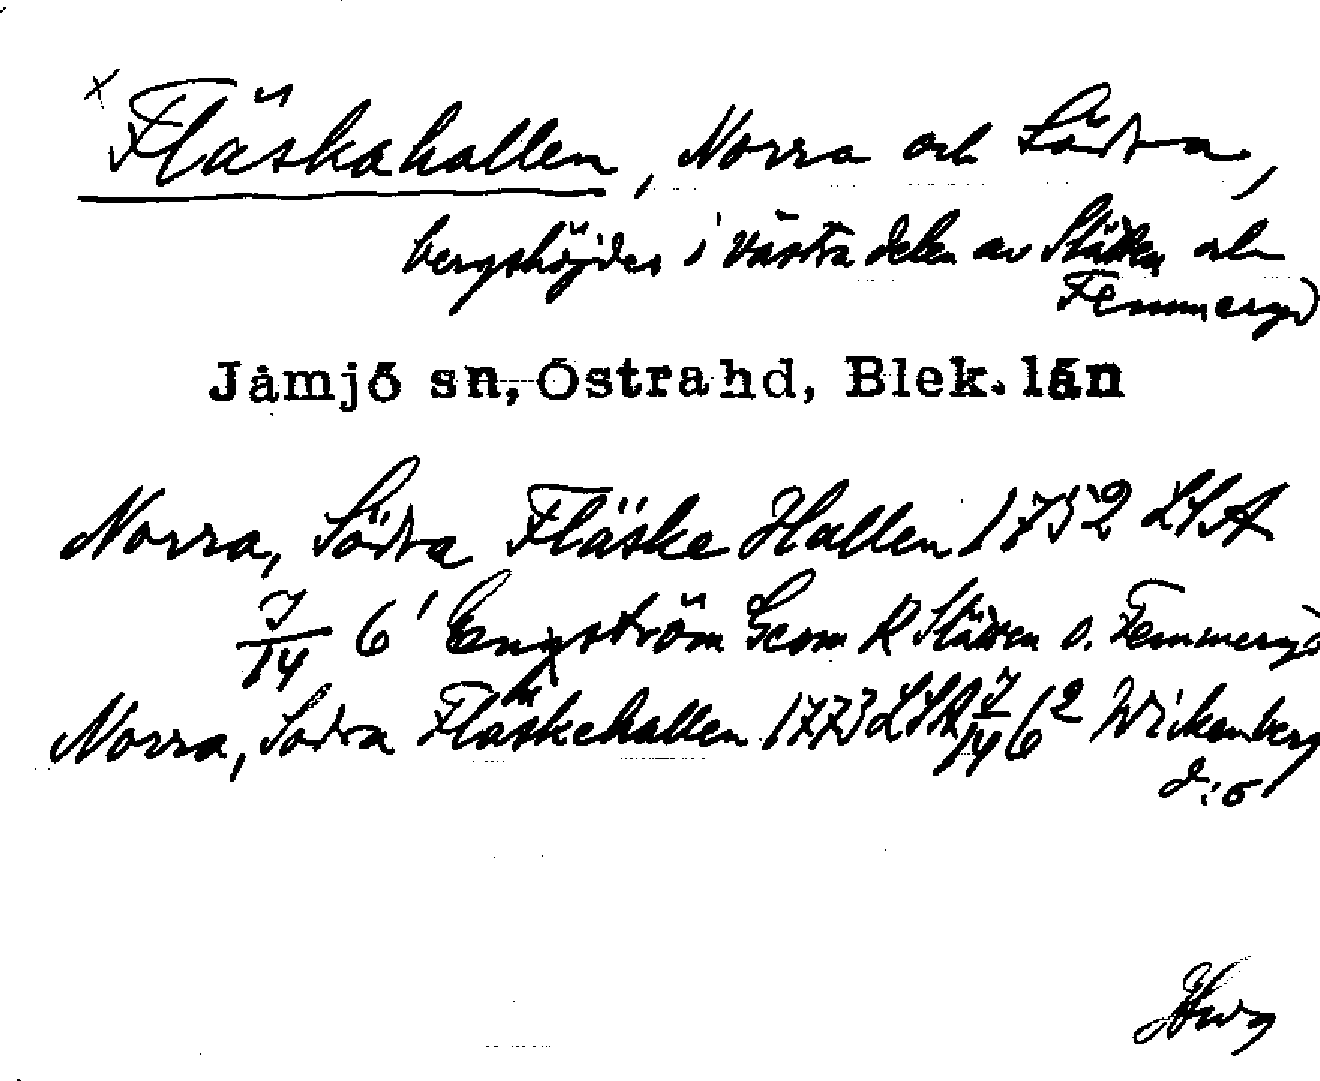 x Fläskahallen, Norra och Södra,
bergshöjder i västra delen av Stätten och
Femmeryd
Jämjö sn, Östra hd, Blek. län
Norra, Södra Fläske Hallen 1752 LSA
J/14 6¹ Engström Geom R Ställen o. Femmeryd
Norra, Södra Fläskehallen 1773 LSA J/14 6² Wickenberg
d:o